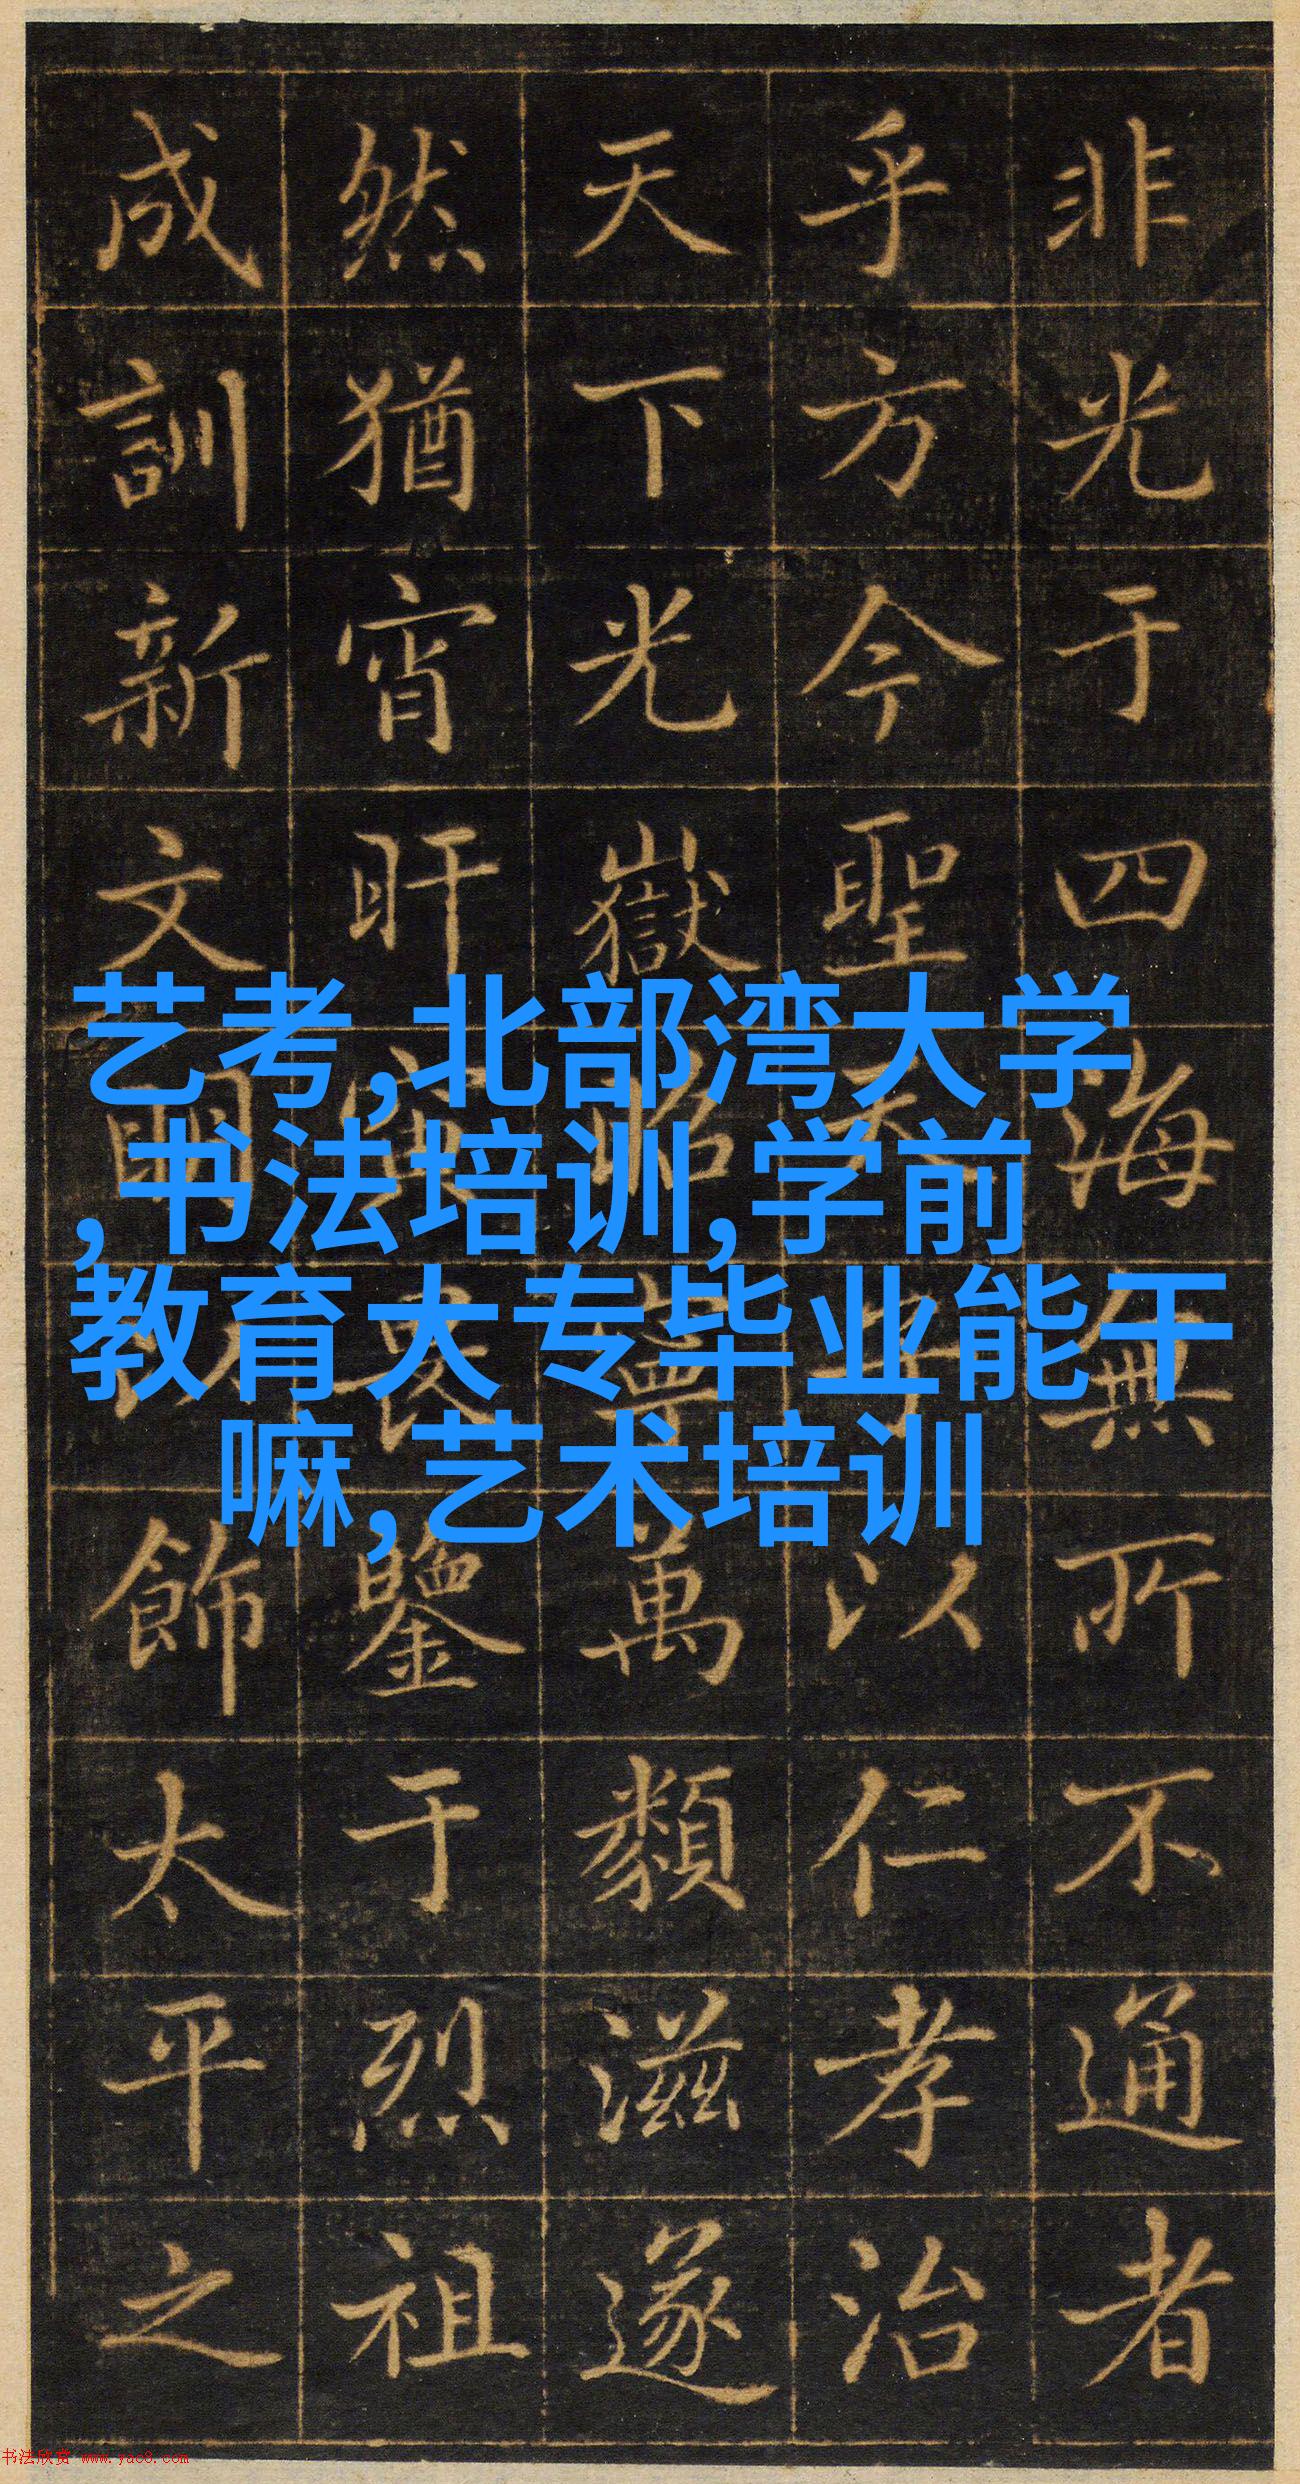 非光于四海無所不通者
乎方今聖天子以仁孝治
天下光嶽昭寧萬類滋遂
然猶宵旰寅畏鑒于烈祖
成訓新文明以飾太平之
艺考,北部湾大学
,书法培训,学前
教育大专毕业能干
嘛,艺术培训
书法欣赏 www.yac8.com